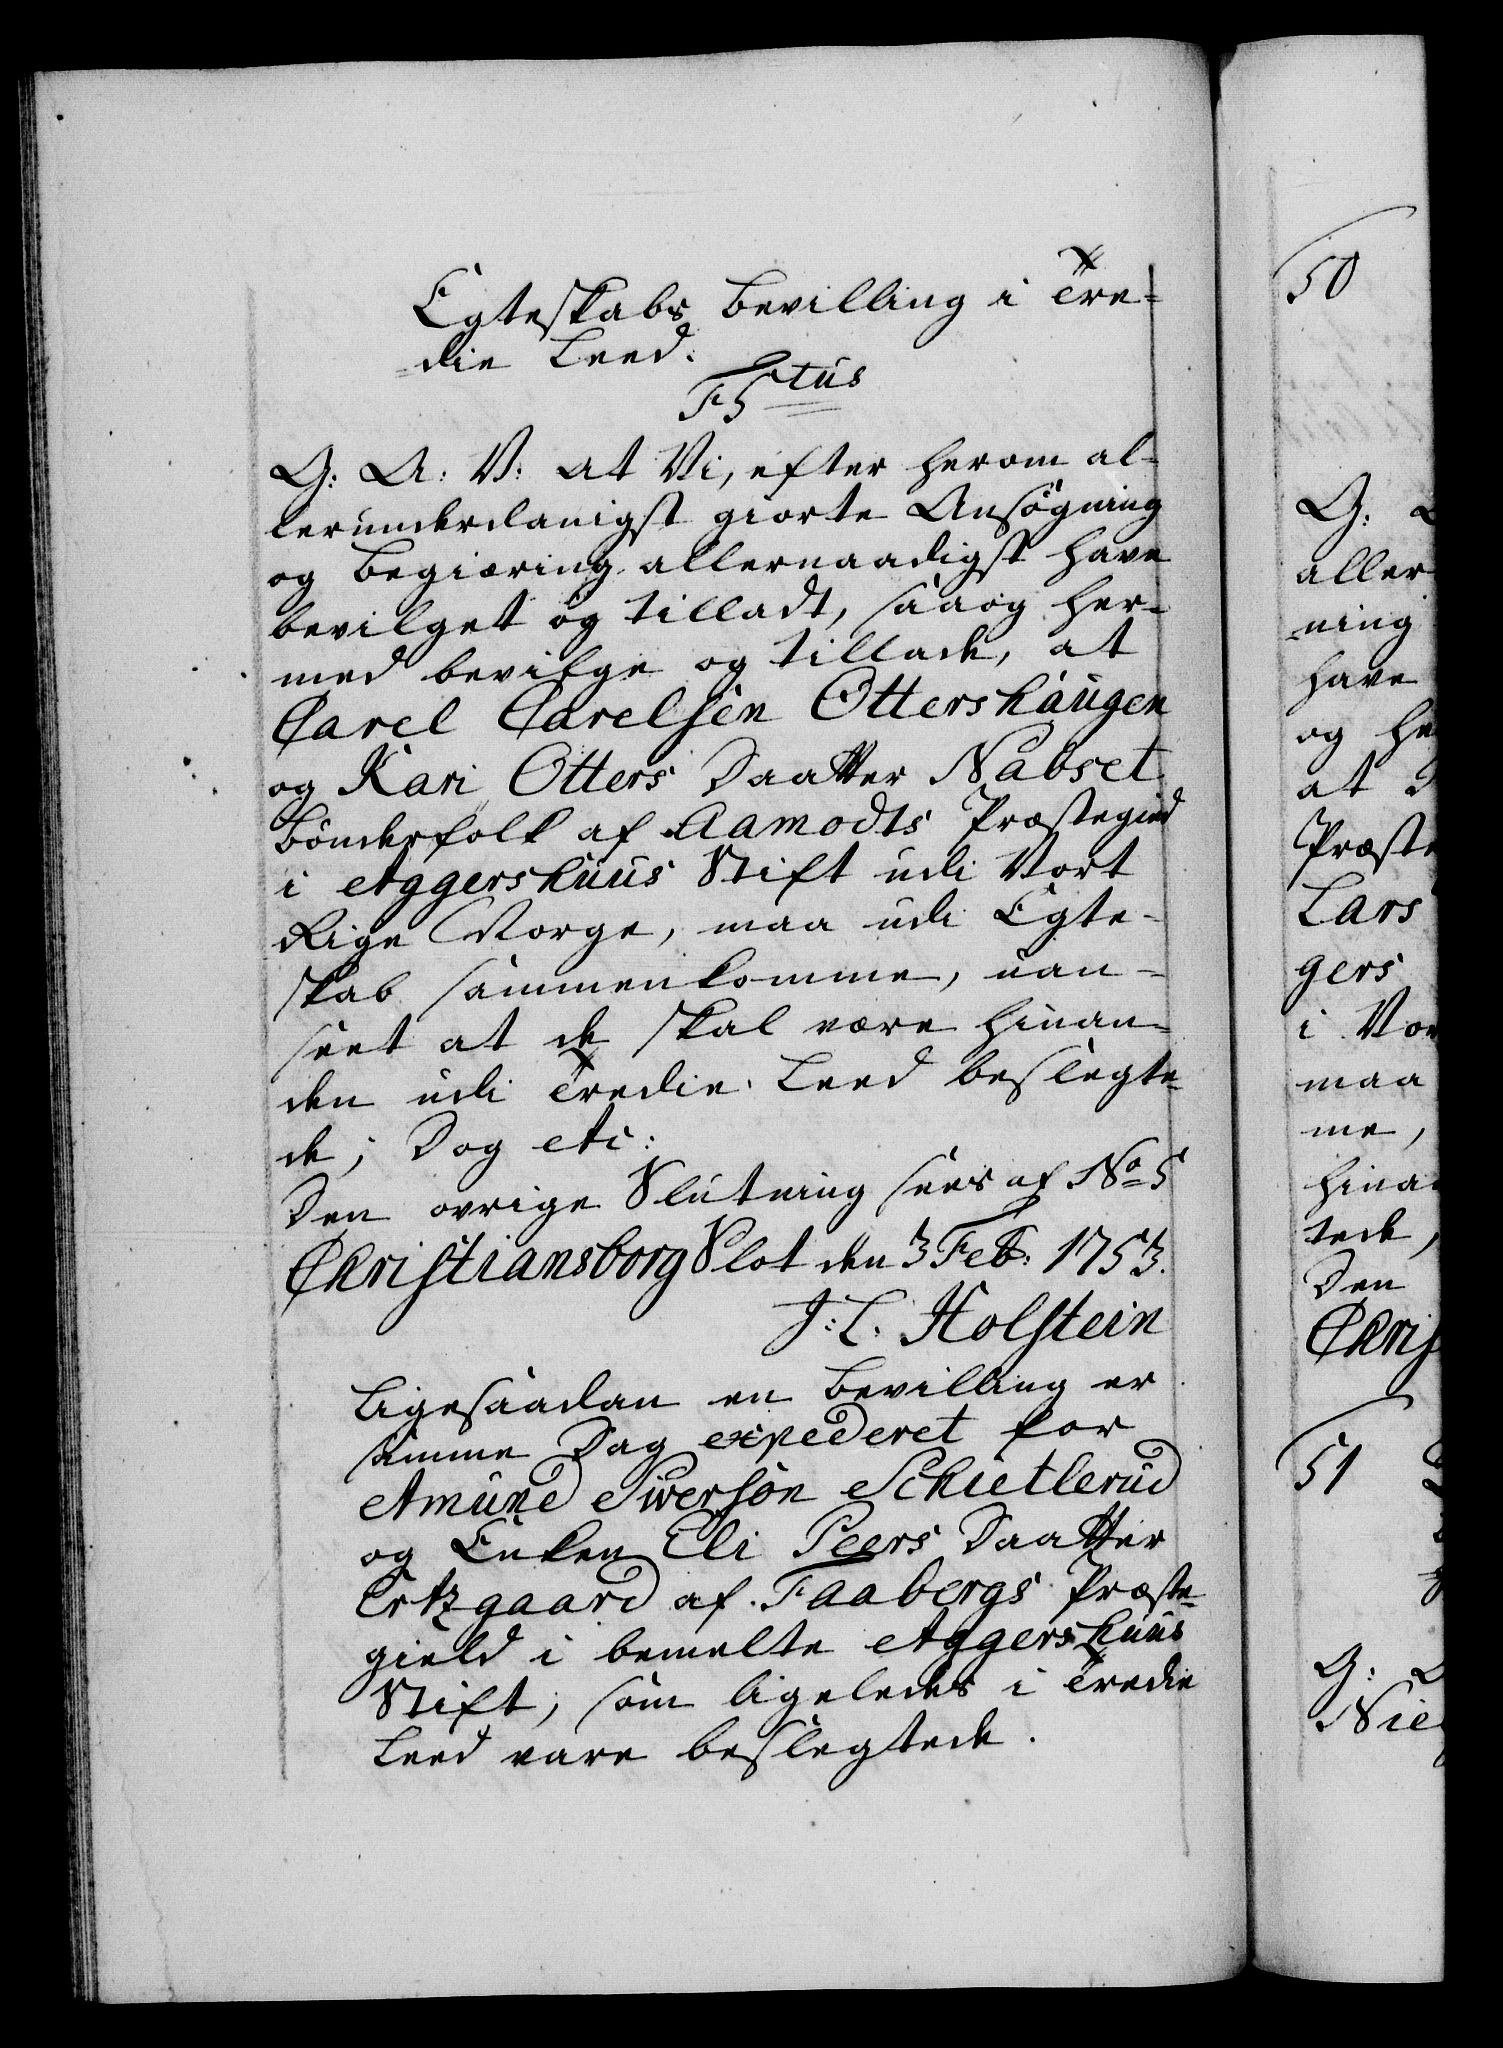 Egteskabs Bevilling i Tre-
die Leed.
F5tus
G: A: V: at Vi, efter herom al-
lerunderdanigst giorte Ansøgning
og Begiæring allernaadigst have
bevilget og tilladt, saa og her-
med bevilge og tillade, at
Carel Carelsen Ottershaugen
og Kari Otters Daatter Nabset
Bønderfolk af Aamodts Præstegield
i Aggershuus Stift udi Vort
Rige Norge, maa udi Egte-
skab sammenkomme, uan-
seet at de skal være hinan-
den udi Tredie Leed beslegte-
de; Dog etc:
Den øvrige Slutning sees af No 5
Christiansborg Slot den 3 Feb: 1753.
J: L. Holstein
Ligesaadan en Bevilling er
samme Dag expederet for
Amund Siversøn Schietlerud
og Enken Eli Peers Daatter
Ertzgaard af Faabergs Præste-
gield i bemelte Aggershuus
Stift, som ligeledes i Tredie
Leed vare beslegtede.
50
G: A
aller
ning
have
og he
at
Præste
Lars
gers
i Vor
maa
me,
hinan
tede,
Den
Chris
51
G:
Nie